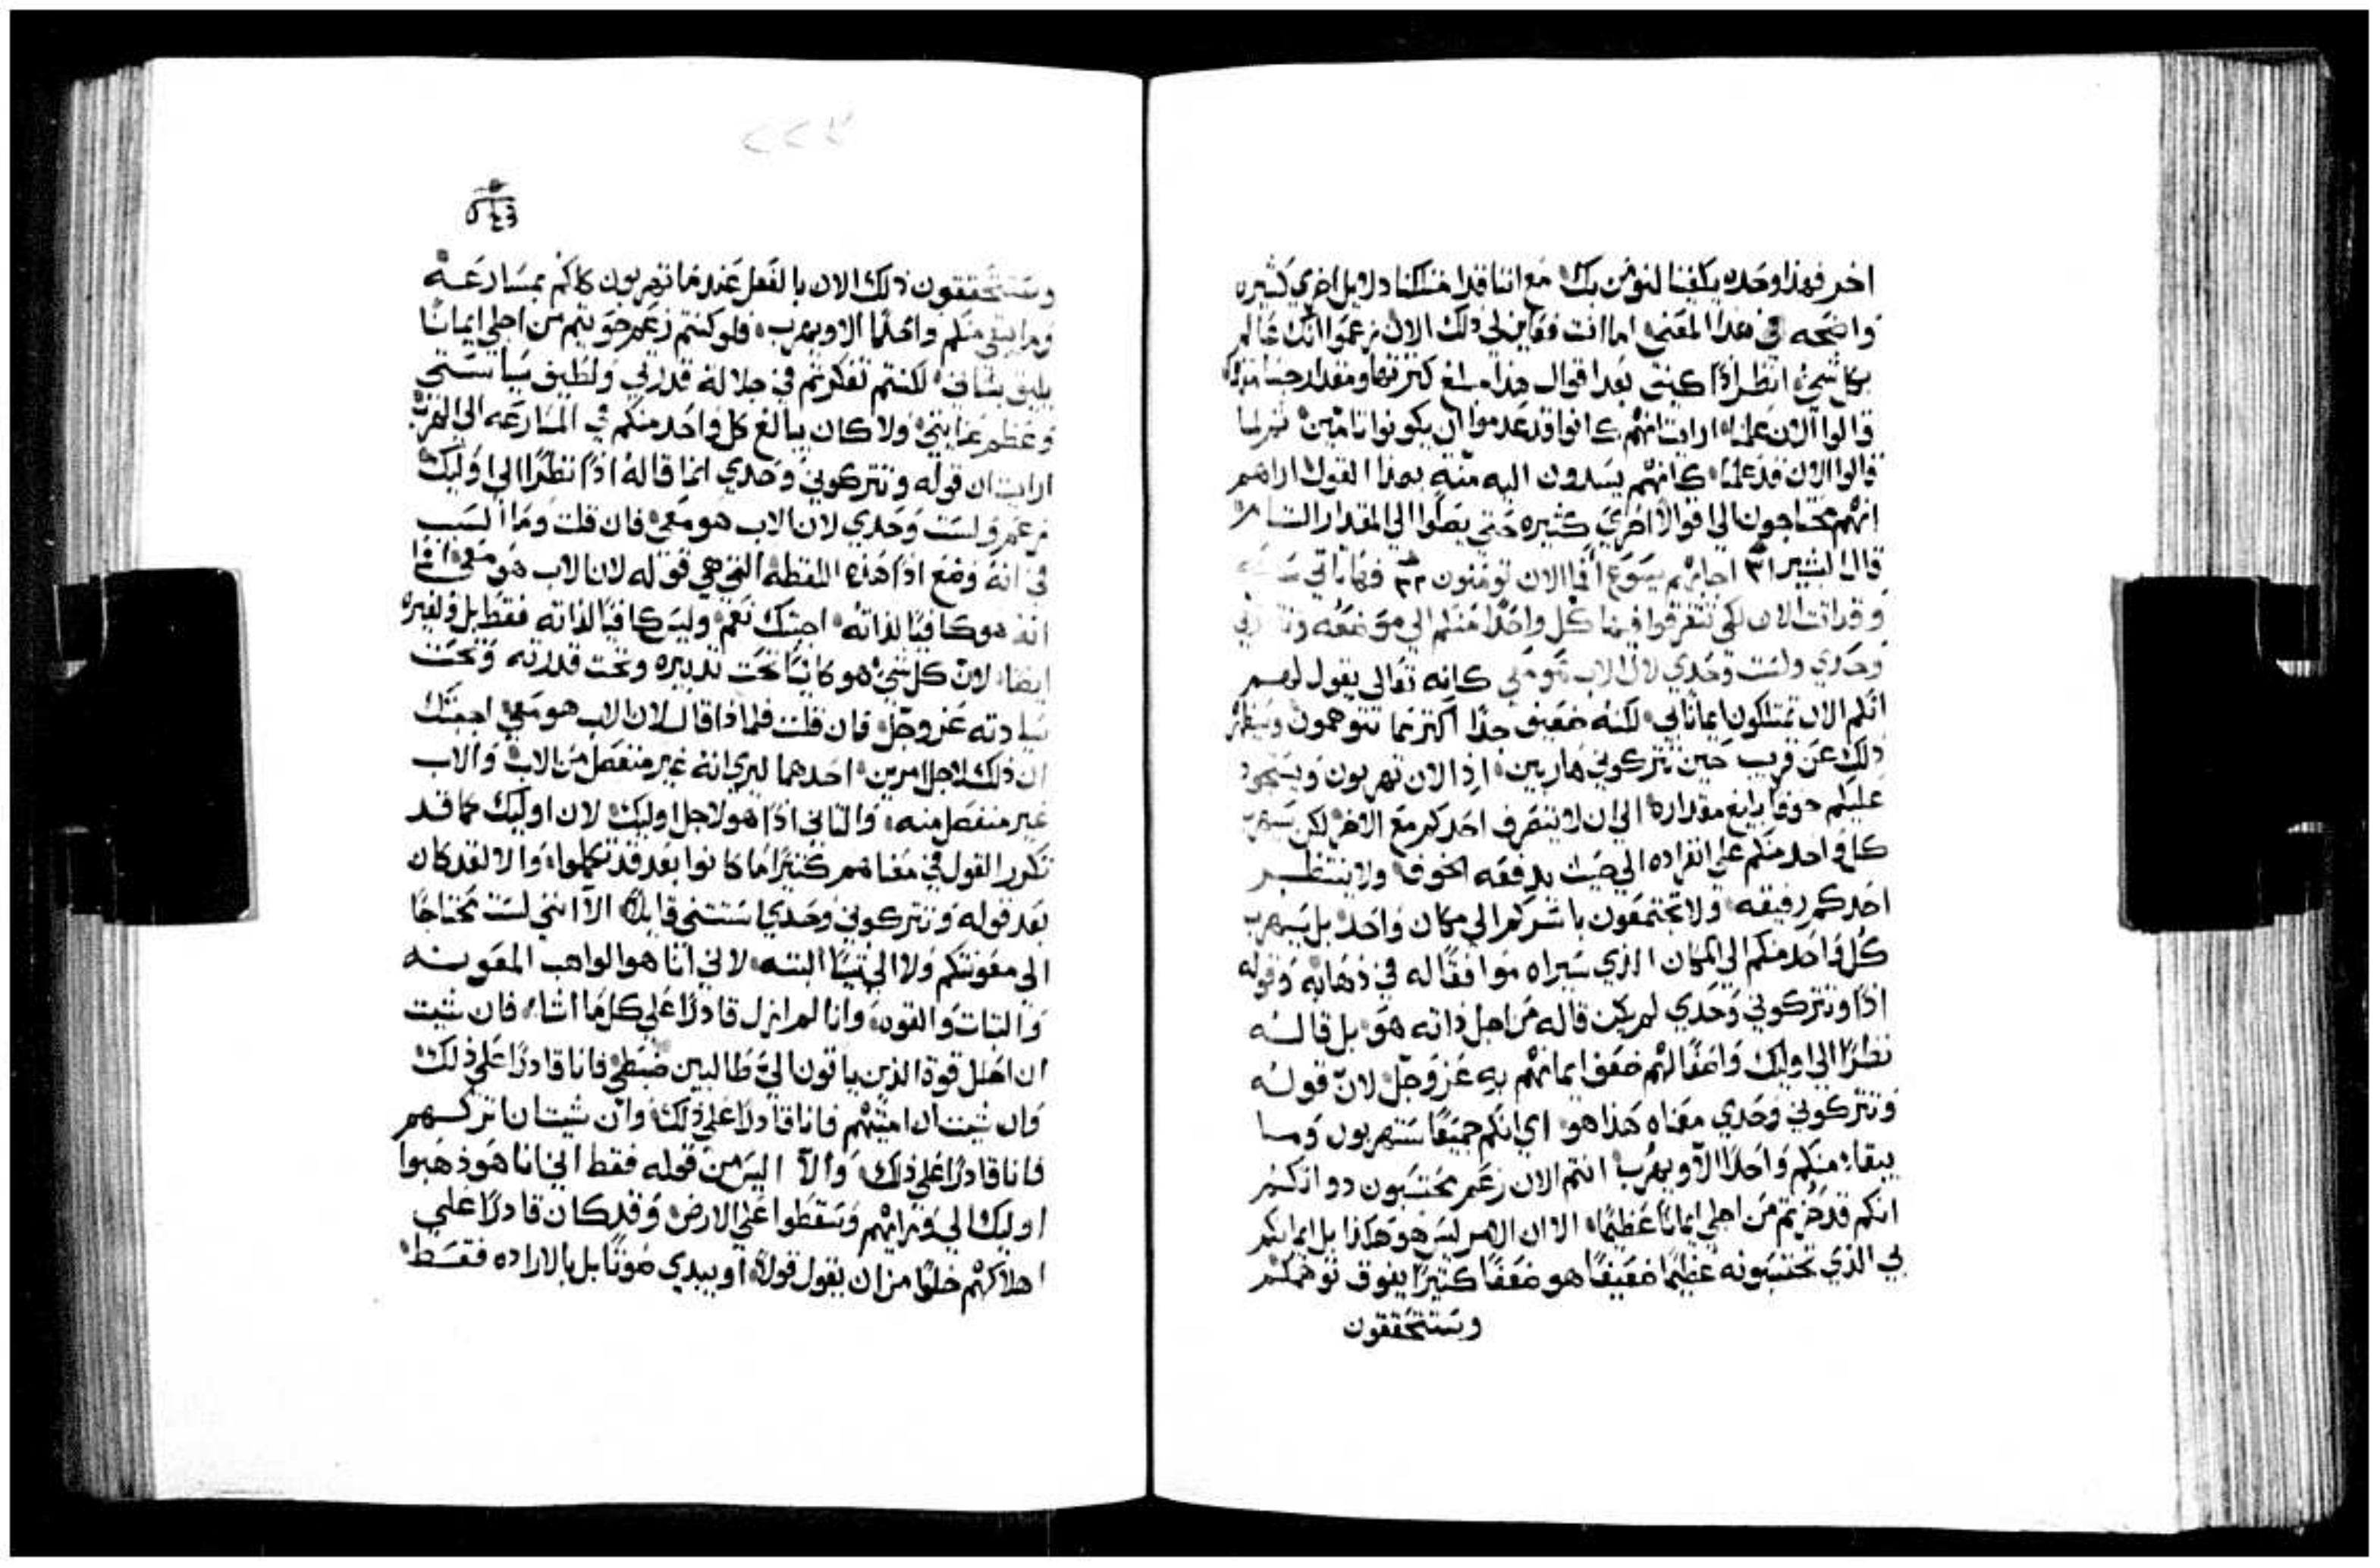 اخر فهذا وحده يكفينا لنومن بك مع اننا قد امتلكنا دلايل اخري كثيره
واضحه في هذا المعني اما انت فقاين لي ذلك الان زعموا انك عالم
بكل شيء انظر اذًا كيف بعد اقوال هذا مبلغ كثرتها ومقدار جسامتها
قالوا الان علمنا ارايت انهم كانوا قد عدموا ان يكونوا تامين
قالوا الان قد علمنا كانهم يسدون اليه منة بهذا القول اراهم
انهم محتاجون الي اقوالًا اخري كثيره حتي يصلوا الي المقدار التام
قال البشير ٣١ اجابهم يسوع افالان تومنون ٣٢ فها تاتي ساعه
وقد اتت الان لكي تتفرقوا فيها كل واحدًا منكم الي موضعه وتتركوني
وحدي ولست وحدي لان الاب هو معي كانه تعالي يقول لهم
انكم الان تمتلكون ايمانًا بي لكنه ضعيف جدًا اكثر مما تتوهمون وسيظهر
ذلك عن قريب حين تتركوني هاربين اذ الان تهربون ويستحوذ
عليكم خوفًا بالغ مقداره الي ان لا ينصرف احدكم مع الاخر لكن سيهرب
كل واحد منكم علي انفراده الي حيث يدفعه الخوف ولا ينتظر
احدكم رفيقه ولا تجتمعون باسركم الي مكان واحد بل سيهرب
كل واحد منكم الي المكان الذي سيراه موافقًا له في ذهابه وقوله
اذًا وتتركوني وحدي لم يكن قاله من اجل ذاته هو بل قاله
نظرًا الي اوليك واصفًا لهم ضعف ايمانهم به عز وجل لان قوله
وتتركوني وحدي معناه هذا هو اي انكم جميعًا ستهربون وما
يبقا منكم واحدًا الا ويهرب انتم الان زعم تحتسبون ذواتكم
انكم قد حزتم من اجلي ايمانًا عظيمًا الا ان الامر ليس هو هكذا بل ايمانكم
بي الذي تحتسبونه عظيمًا ضعيفًا هو ضعفًا كثيرًا يفوق توهمكم
وستتحققون
٥٤٣
وستتحققون ذلك الان بالفعل عندما تهربون كلكم بمسارعة
وما يبقي منكم واحدًا الا ويهرب فلو كنتم زعم حويتم من اجلي ايمانًا
يليق بشاني لكنتم تفكرتم في جلالة قدرتي ولطيف سياستي
وعظم عنايتي ولا كان يبالغ كل واحد منكم في المسارعه الي الهرب
ارايت ان قوله وتتركوني وحدي انما قاله اذًا نظرًا الي اوليك
زعم ولست وحدي لان الاب هو معي فان قلت وما السبب
في انه وضع اذًا هذه اللفظه التي هي قوله لان الاب هو معي افما
انه هو كافيًا لذاته اجبتك نعم وليس كافيًا لذاته فقط بل ولغيره
ايضًا لان كل شيء هو كاينًا تحت تدبيره وتحت قدرته وتحت
سيادته عز وجل فان قلت فلماذا قال لان الاب هو معي اجبتك
ان ذلك لاجل امرين احدهما ليري انه غير منفصل من الاب والاب
غير منفصل منه والثاني اذًا هو لاجل اوليك لان اوليك كما قد
تكرر القول في معناهم كثيرًا ما كانوا بعد قد تكملوا والا لقد كان
بعد قوله وتتركوني وحدي استثني قايلًا الا انني لست محتاجًا
الي معونتكم ولا الي شيئًا البته لاني انا هو الواهب المعونه
والثبات والقوه وانا لم ازل قادرًا علي كل ما اشاء فان شيت
ان احلل قوة الذين ياتون اليّ طالبين ضبطي فانا قادرًا علي ذلك
وان شيت ان اميتهم فانا قادرًا علي ذلك وان شيت ان اتركهم
فانا قادرًا علي ذلك والا اليس من قوله فقط اني انا هو ذهبوا
اوليك الي ورايهم وسقطوا علي الارض وقد كان قادرًا علي
اهلاكهم خلوًا من ان يقول قولًا او يبدي صوتًا بل بالاراده فقط